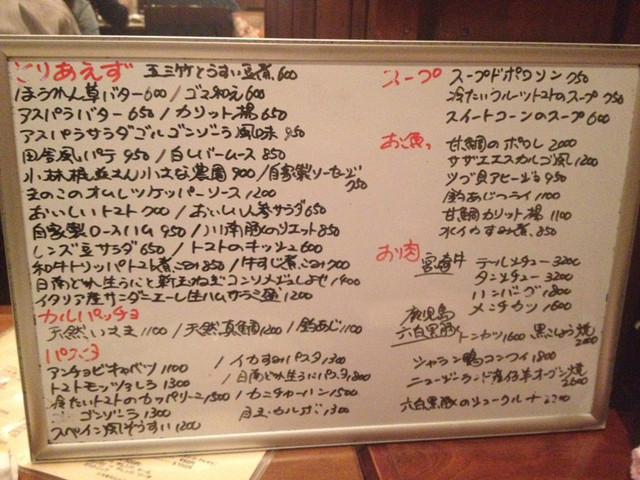 とりあえず 五三竹とうすい豆煮 600
ほうれん草バター 600 / ゴマ和え 600
アスパラバター 650 / カリット揚 650
アスパラサラダゴルゴンゾーラ風味 950
田舎風パテ 950 / 白レバームース 850
小林 さん小さな農園 900 / 自家製ソーセージ 750
きのこのオムレツケッパーソース 1200
おいしいトマト 700 / おいしい人参サラダ 650
自家製ロースハム 950 / 川南豚のリエット 850
レンズ豆サラダ 650 / トマトのキッシュ 600
和牛トリッパトマト煮こみ 850 / 牛すじ煮こみ 700
日南どれ生うにと新玉ねぎコンソメジュレよせ 1400
イタリア産サンダニエーレ生ハムサラミ 1200
カルパッチョ
天然いさき 1100 / 天然真鯛 1200 / 釣あじ 1100
パスタ
アンチョビキャベツ 1100 / イカすみパスタ 1300
トマトモッツァレラ 1300 / 日南どれ生うにパスタ 1800
冷たいトマトのカッペリーニ 1500 / カニチャーハン 1500
ゴンゾーラ 1300 カルボ 1300
スペイン風ぞうすい 1200
スープ スープドポワソン 750
冷たいフルーツトマトのスープ 750
スイートコーンのスープ 600
お魚 甘鯛のポワレ 2000
サザエエスカルゴ風 1200
ツブ貝アヒージョ 950
釣あじフライ 1100
甘鯛カリット揚 1100
水イカすみ煮 850
お肉 宮崎牛 テールシチュー 3200
タンシチュー 3200
ハンバーグ 1800
メンチカツ 1600
鹿児島六白黒豚 トンカツ 1600 黒こしょう焼 2000
シャラン鴨コンフィ 1800
ニュージーランド産仔羊オーブン焼 2600
六白黒豚のシュークルート 2200